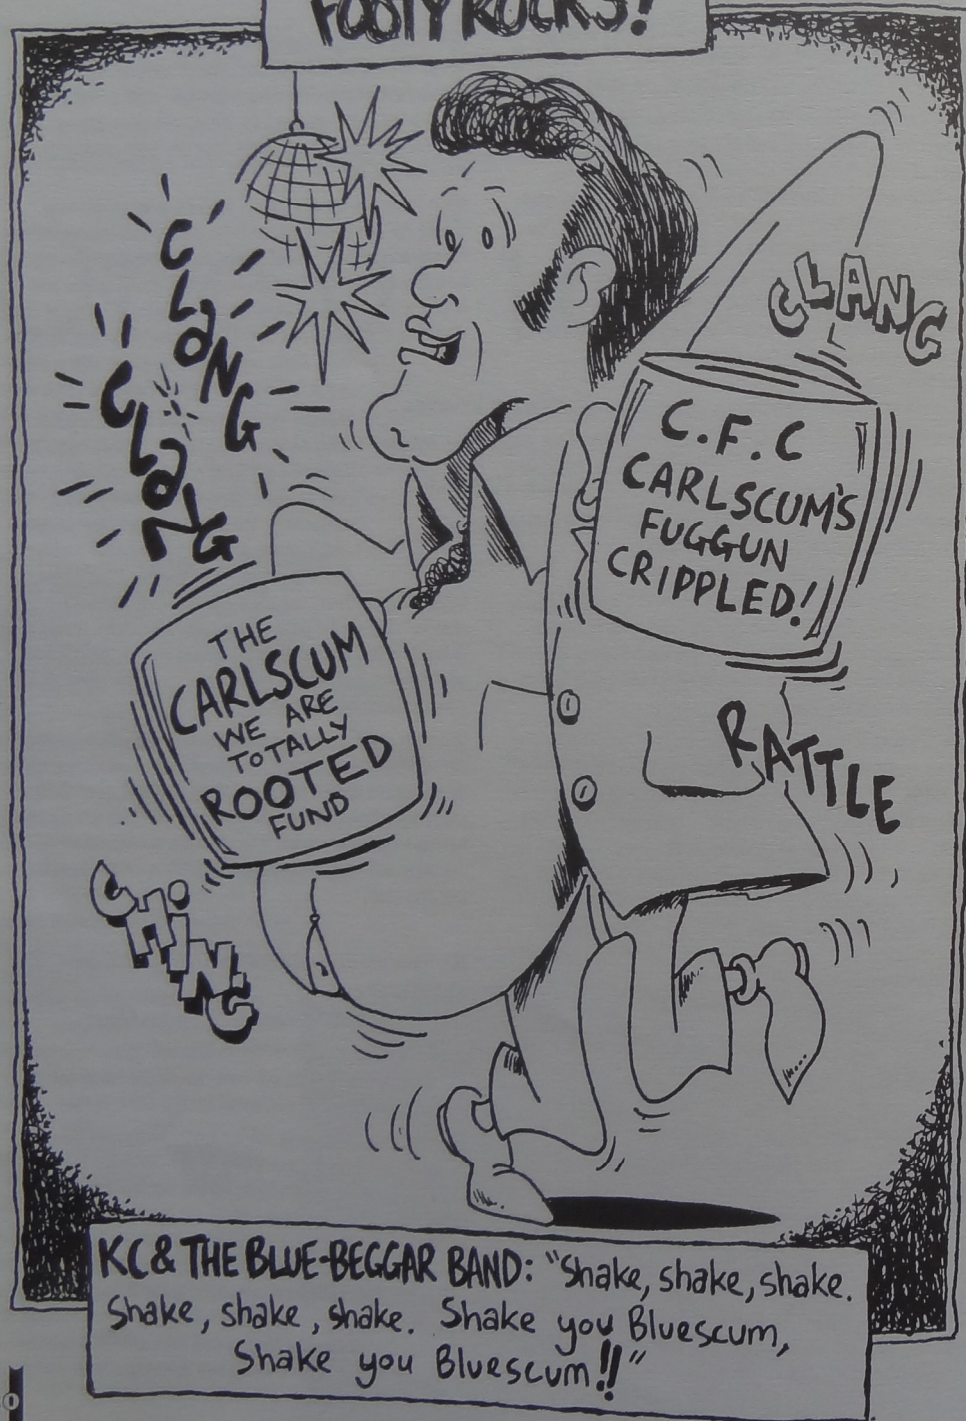 FOOTY ROCKS!
CLANG
CLANG
CLANG
C.F.C
CARLSCUM'S
FUGGUN
CRIPPLED!
THE
CARLSCUM
WE ARE
TOTALLY
ROOTED
FUND
RATTLE
CHING
KC & THE BLUE-BEGGAR BAND: "Shake, shake, shake.
Shake, shake, shake. Shake you Bluescum,
Shake you Bluescum!!"
0